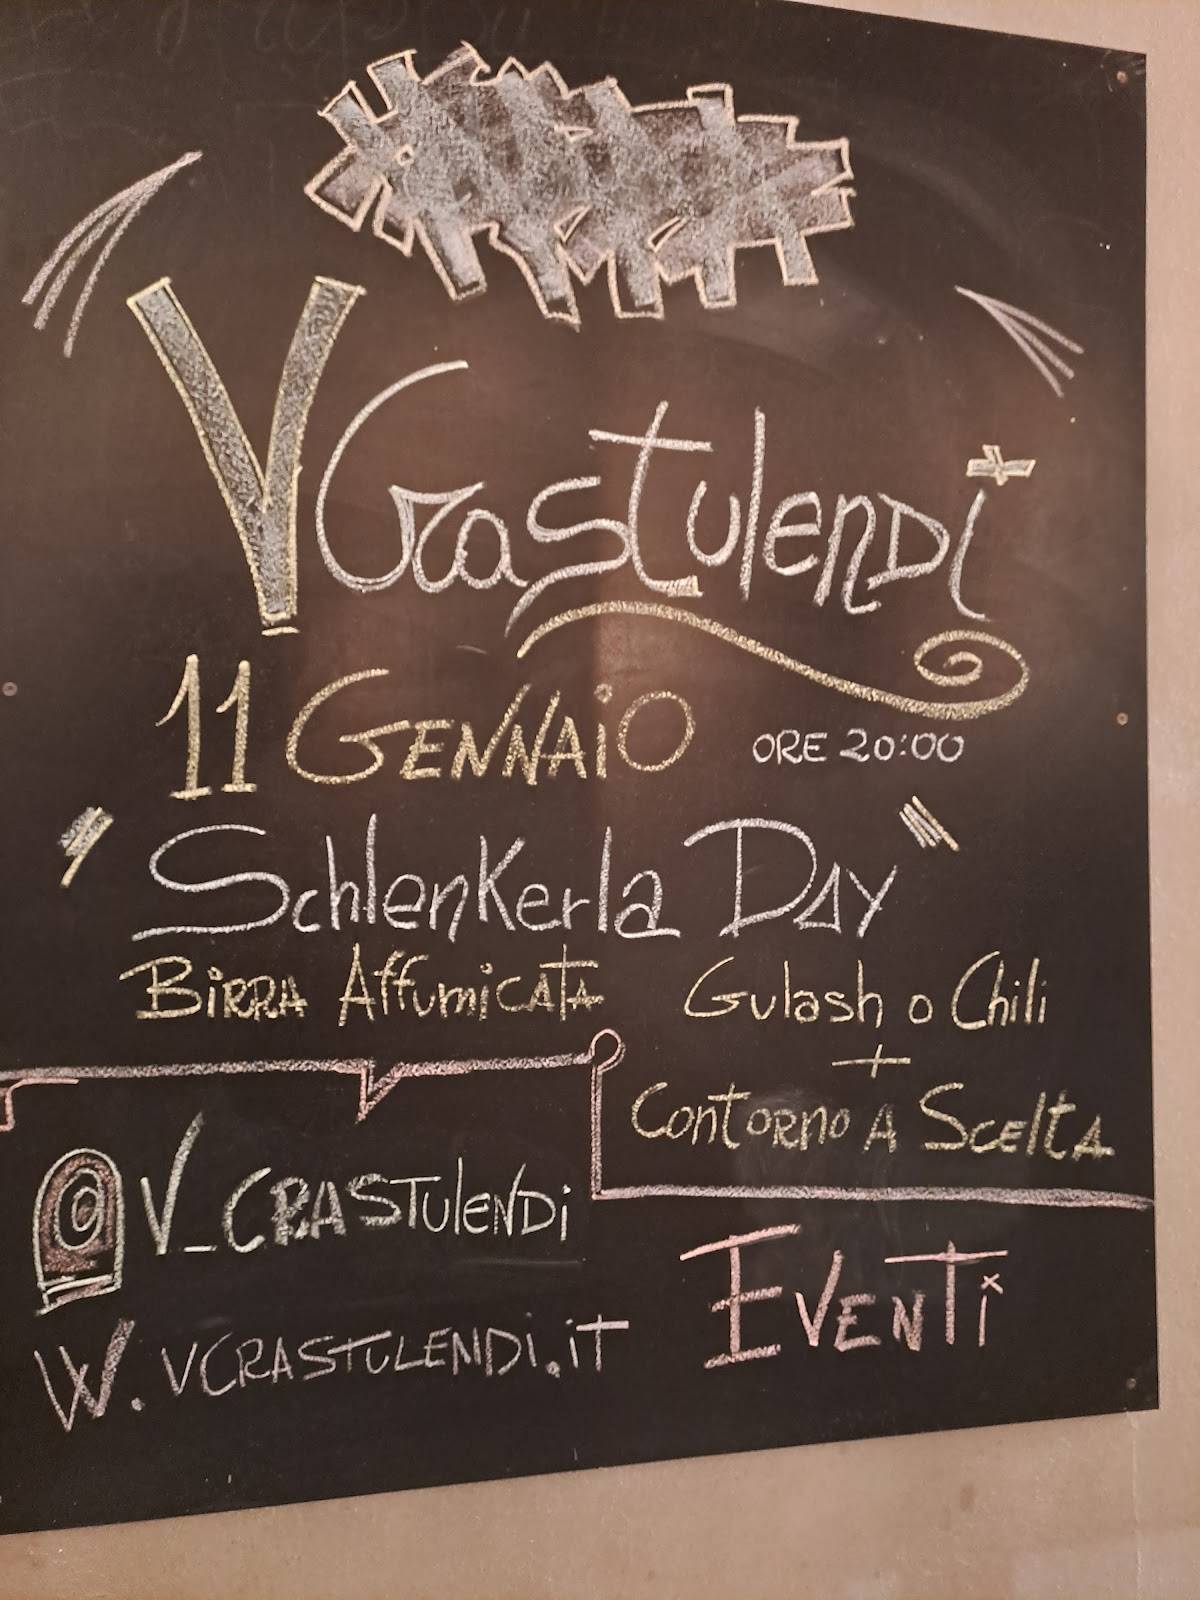 V Crastulendi
11 Gennaio ORE 20:00
"Schlenkerla Day"
Birra Affumicata
Gulash o Chili
+
Contorno a Scelta
@V_CRASTULENDi
W.VCRASTULENDi.iT
EVENTi